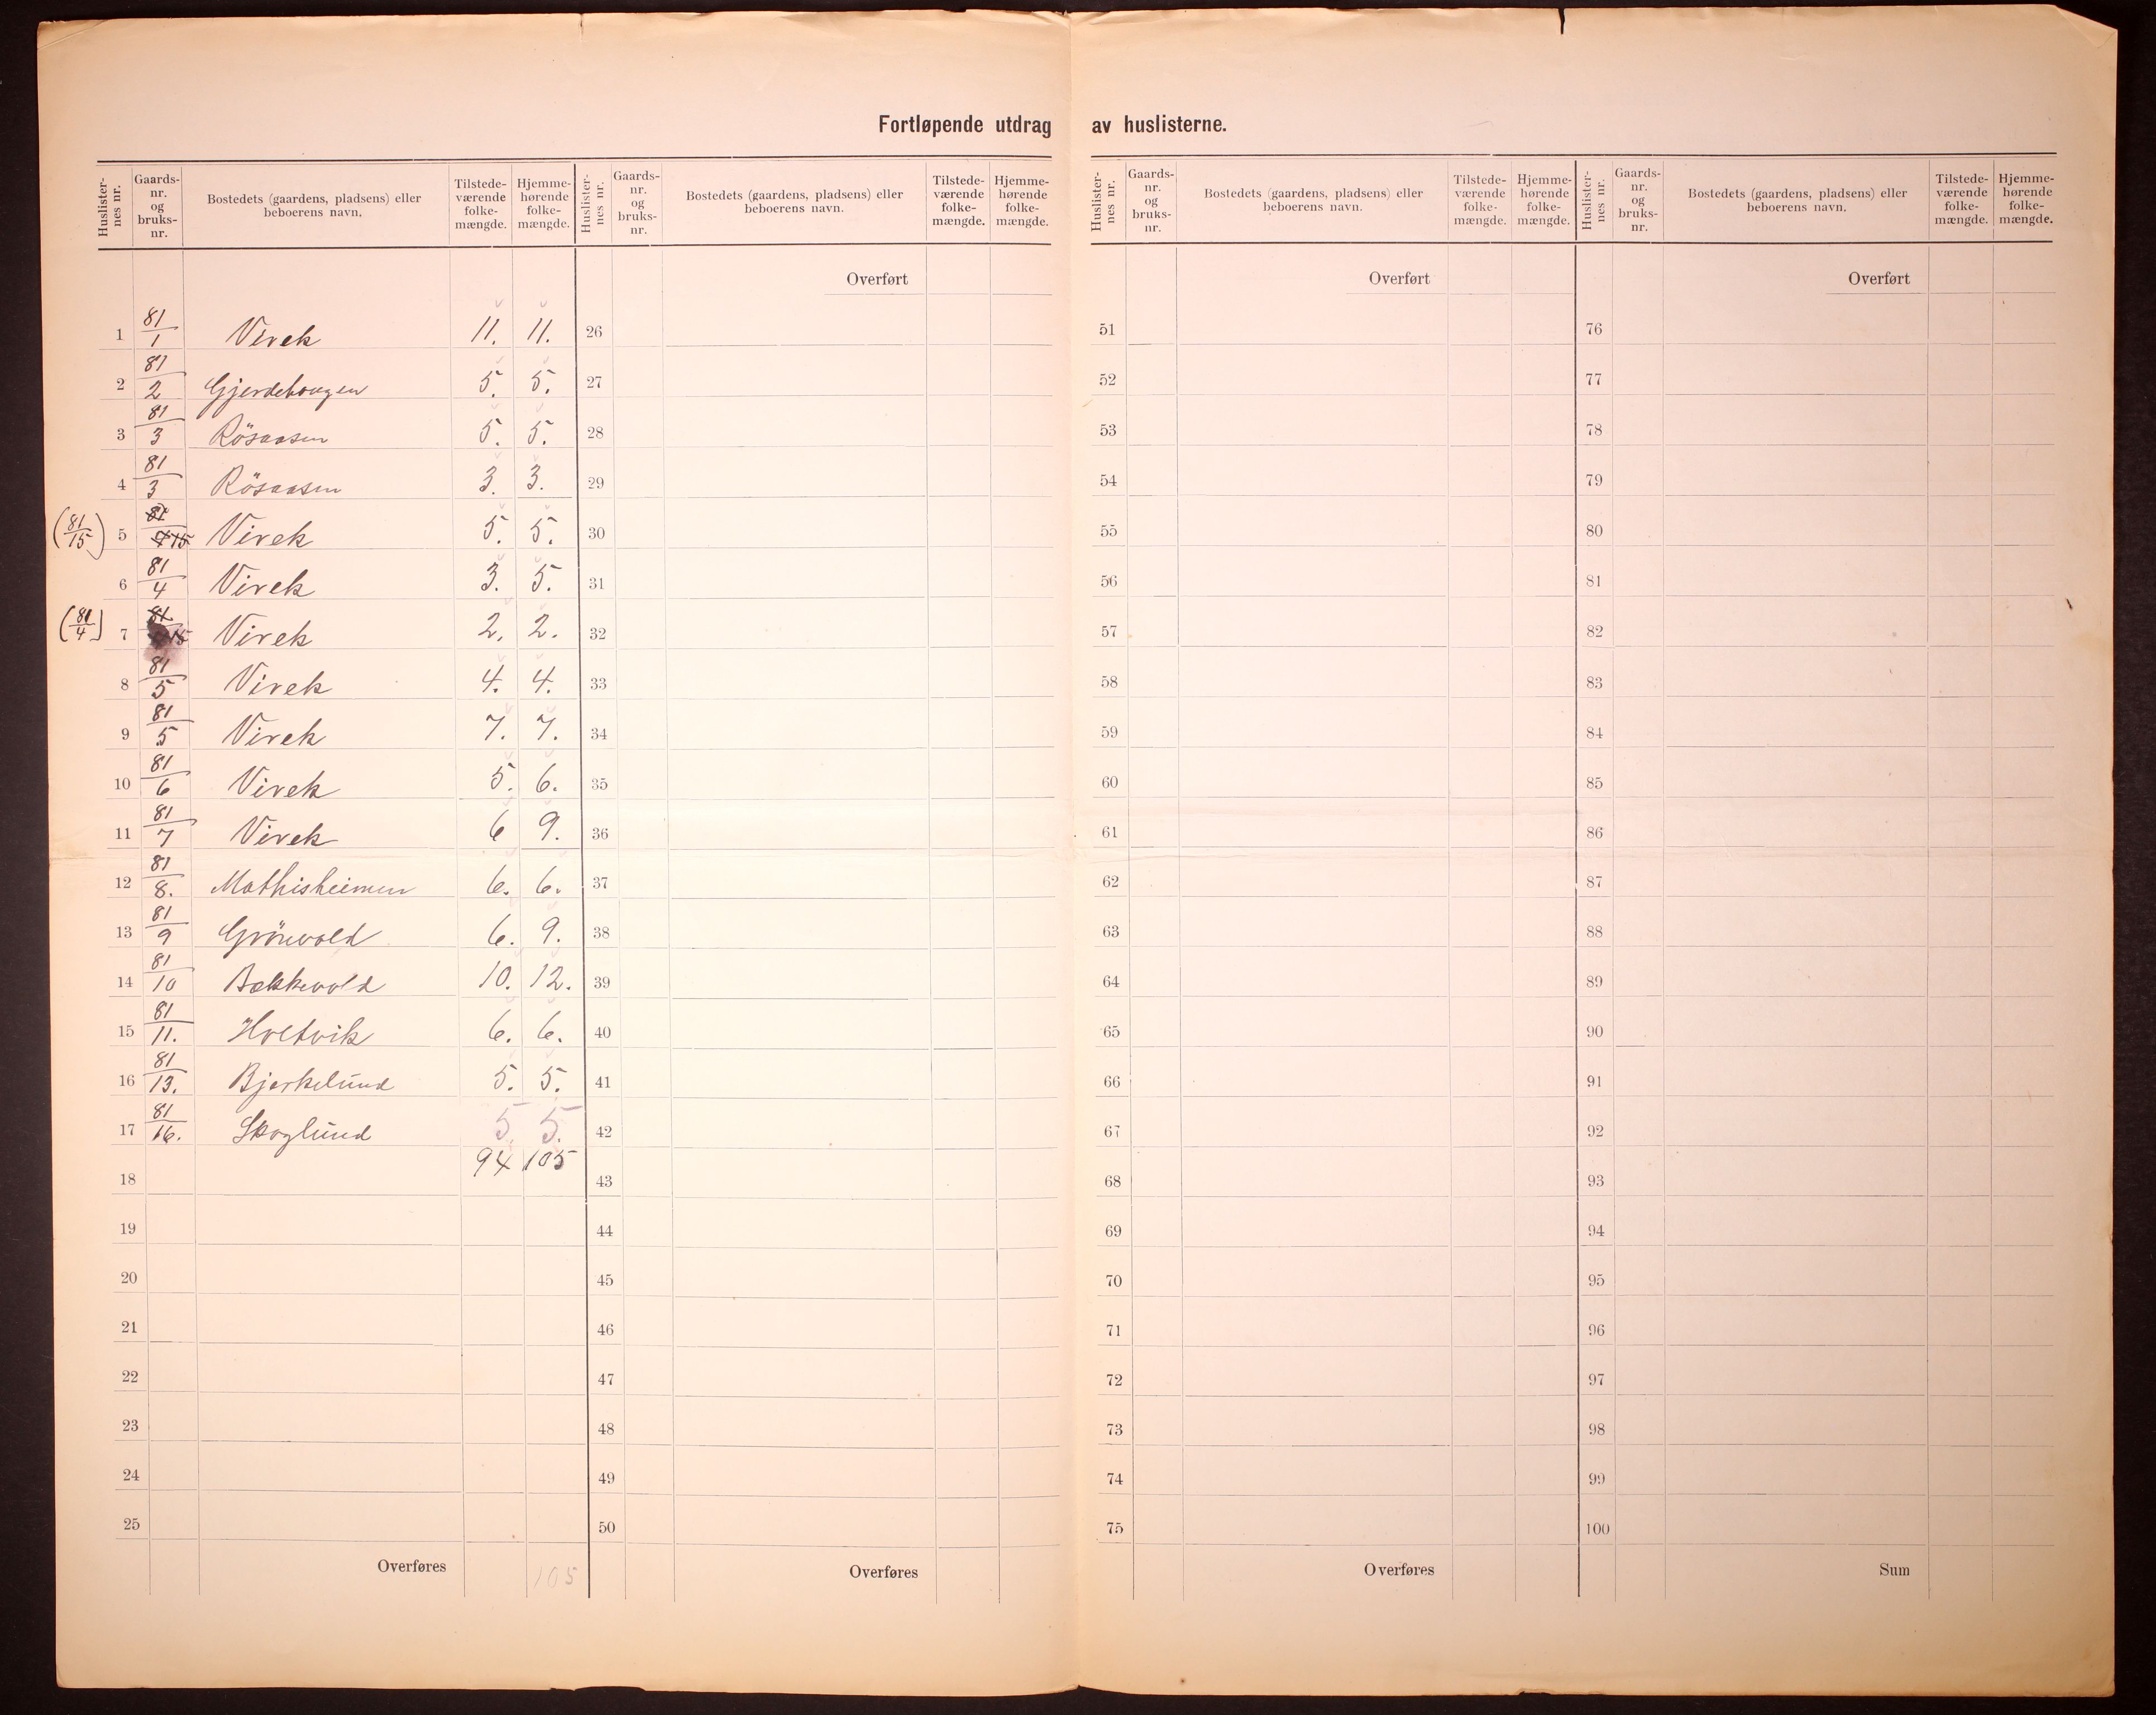 Fortløpende utdrag av huslisterne.
Huslister-nes nr. | Gaards-nr. og bruks-nr. | Bostedets (gaardens, pladsens) eller beboerens navn. | Tilstede-værende folke-mængde. | Hjemme-hørende folke-mængde.
1 81/1 Virek 11. 11.
2 81/2 Gjerdehaugen 5. 5.
3 81/3 Rösaasen 5. 5.
4 81/3 Rösaasen 3. 3.
(81/15) 5 81/ 15 Virek 5. 5.
6 81/4 Virek 3. 5.
(81/4) 7 81/ 15 Virek 2. 2.
8 81/5 Virek 4. 4.
9 81/5 Virek 7. 7.
10 81/6 Virek 5. 6.
11 81/7 Virek 6 9.
12 81/8. Mathisheimen 6. 6.
13 81/9 Grönvold 6. 9.
14 81/10 Bakkevold 10. 12.
15 81/11. Holtvik 6. 6.
16 81/13. Bjerkelund 5. 5.
17 81/16. Skoglund 5. 5.
18 94 105
19
20
21
22
23
24
25
Overføres 105
Huslister-nes nr. | Gaards-nr. og bruks-nr. | Bostedets (gaardens, pladsens) eller beboerens navn. | Tilstede-værende folke-mængde. | Hjemme-hørende folke-mængde.
Overført
26
27
28
29
30
31
32
33
34
35
36
37
38
39
40
41
42
43
44
45
46
47
48
49
50
Overføres
Huslister-nes nr. | Gaards-nr. og bruks-nr. | Bostedets (gaardens, pladsens) eller beboerens navn. | Tilstede-værende folke-mængde. | Hjemme-hørende folke-mængde.
Overført
51
52
53
54
55
56
57
58
59
60
61
62
63
64
65
66
67
68
69
70
71
72
73
74
75
Overføres
Huslister-nes nr. | Gaards-nr. og bruks-nr. | Bostedets (gaardens, pladsens) eller beboerens navn. | Tilstede-værende folke-mængde. | Hjemme-hørende folke-mængde.
Overført
76
77
78
79
80
81
82
83
84
85
86
87
88
89
90
91
92
93
94
95
96
97
98
99
100
Sum